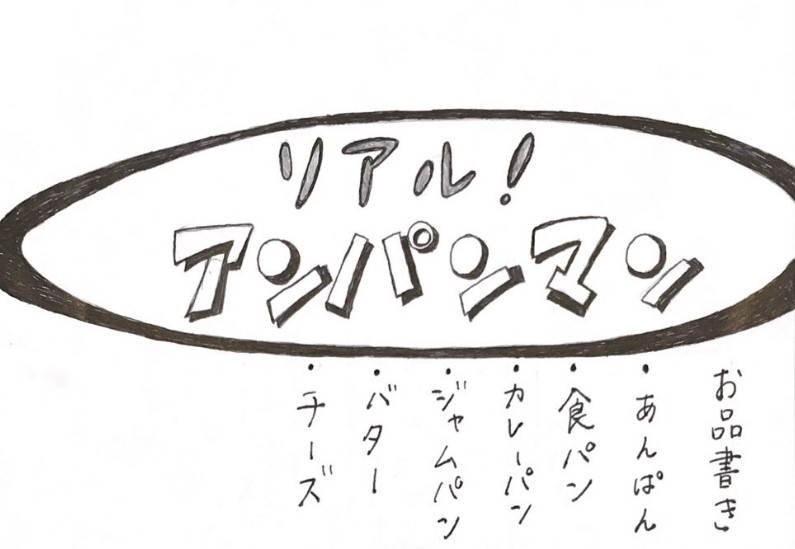 リアル!
アンパンマン
お品書き
・あんぱん
・食パン
・カレーパン
・ジャムパン
・バター
・チーズ